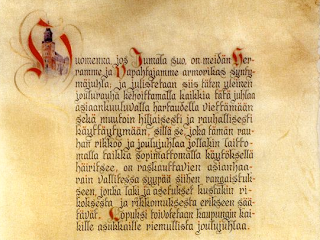 Huomenna, jos Jumala suo, on meidän Her-
ramme ja Vapahtajamme armorikas synty-
mäjuhla, ja julistetaan siis täten yleinen
joulurauha kehoittamalla kaikkia tätä juhlaa
asiaankuuluvalla hartaudella viettämään
sekä muutoin hiljaisesti ja rauhallisesti
käyttäytymään, sillä se, joka tämän rau-
han rikkoo ja joulujuhlaa jollakin laitto-
malla taikka sopimattomalla käytöksellä
häiritsee, on raskauttavien asianhaa-
rain vallitessa syypää siihen rangaistuk-
seen, jonka laki ja asetukset kustakin ri-
koksesta ja rikkomuksesta erikseen sää-
tävät. Lopuksi toivotetaan kaupungin kai-
kille asukkaille riemullista joulujuhlaa.